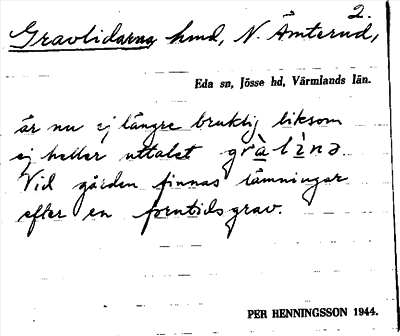 2.
Gravlidarna hmd, N. Ämterud,
Eda sn, Jösse hd, Värmlands län.
är nu ej längre bruklig liksom
ej heller uttalet grà lìnə
Vid gården finnas lämningar
efter en forntidsgrav.
PER HENNINGSSON 1944.